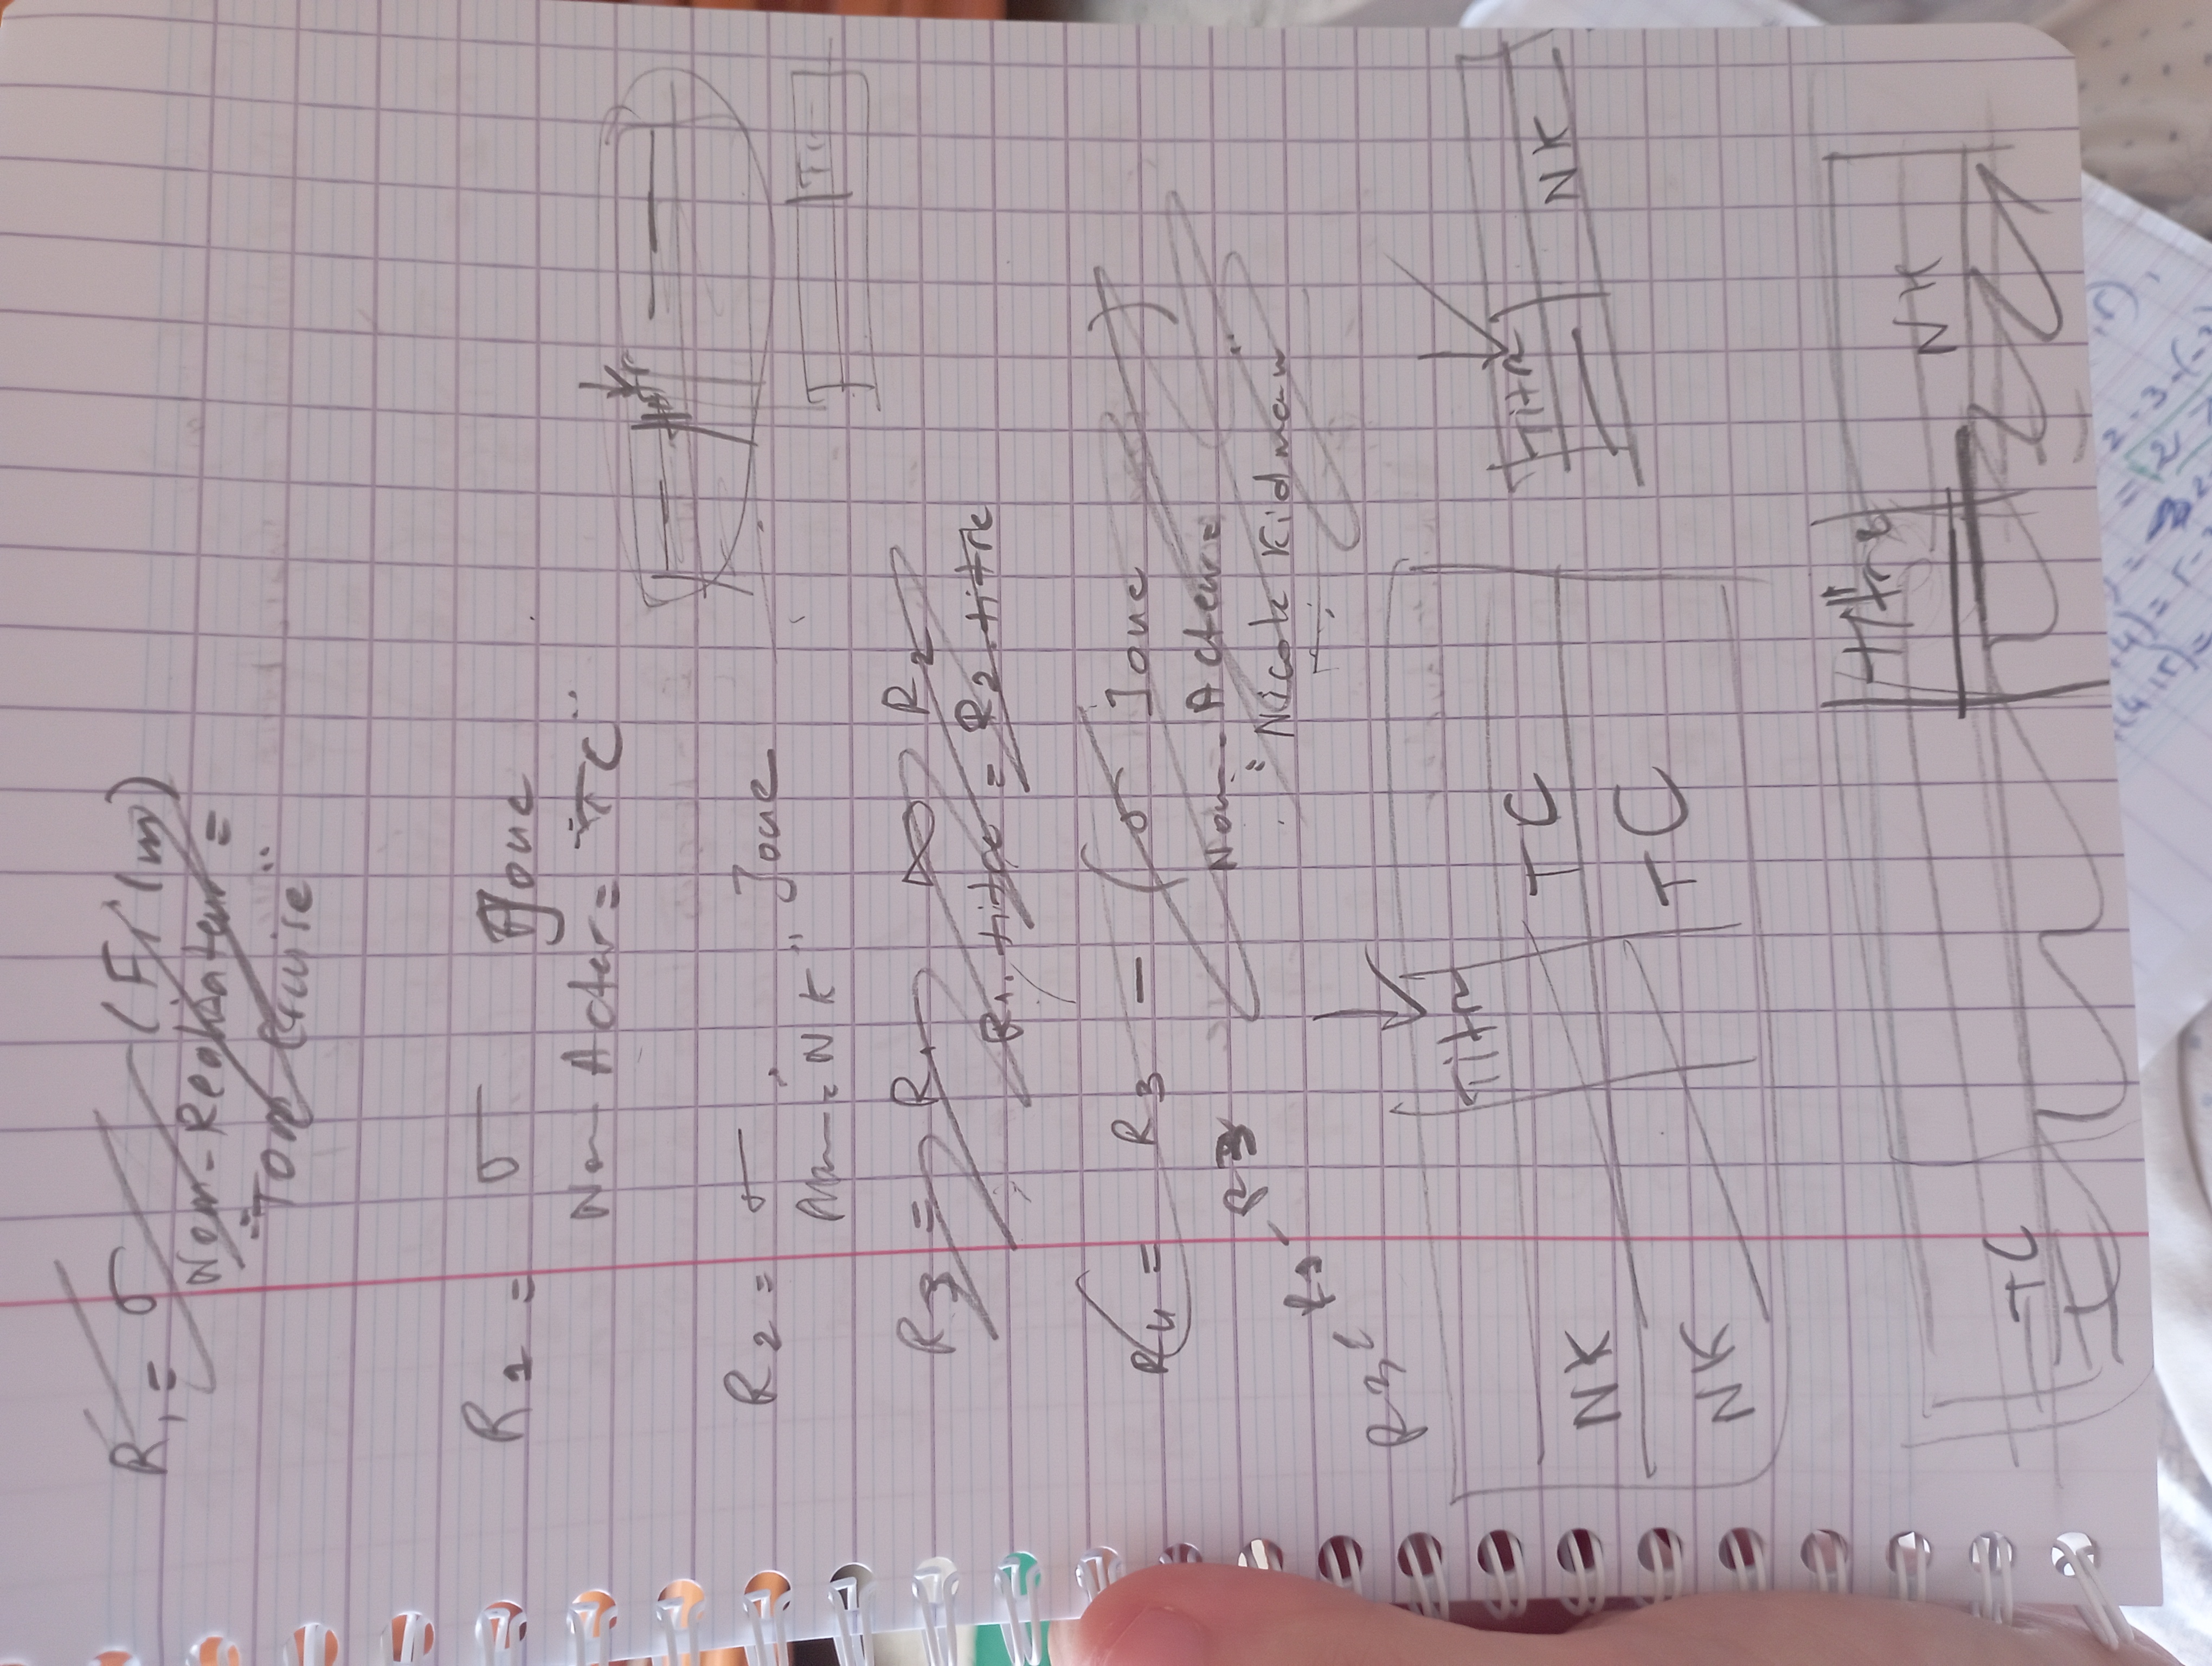 R1 = σ (Film)
Nom-Realisateur =
"Tom Cruise"
R1 = σ Joue
Nom Acteur = "TC"
titr
R2 = σ Joue
= "NK"
R3 = R1 ⋈ R2
R1.titre = R2.titre
R4 = R3 - (σ Joue)
Nom-Acteur =
"Nicole Kidman"
R3
Titre
TC
NK
Titre
NK
TC
NK
Titre
NK
TC